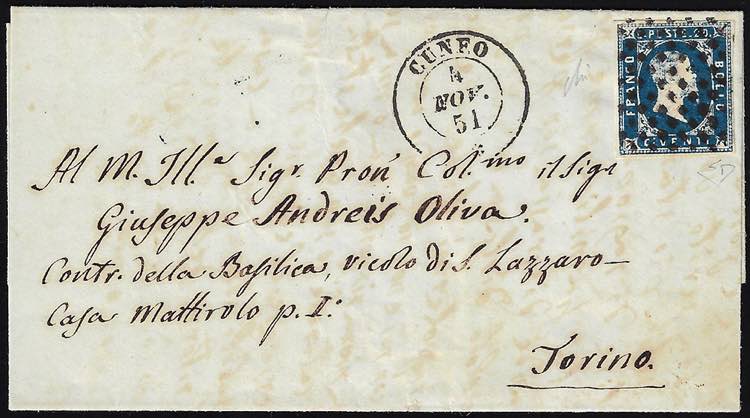 CUNEO
4
NOV.
51
C. POSTE 20.
FRANCO
BOLLO
C. VENTI
Al M. Ill.e Sigr. Pron Col.mo il Sigr
Giuseppe Andreis Oliva.
Contr. della Basilica, vicolo di S. Lazzaro—
Casa Mattirolo p. I:
Torino.